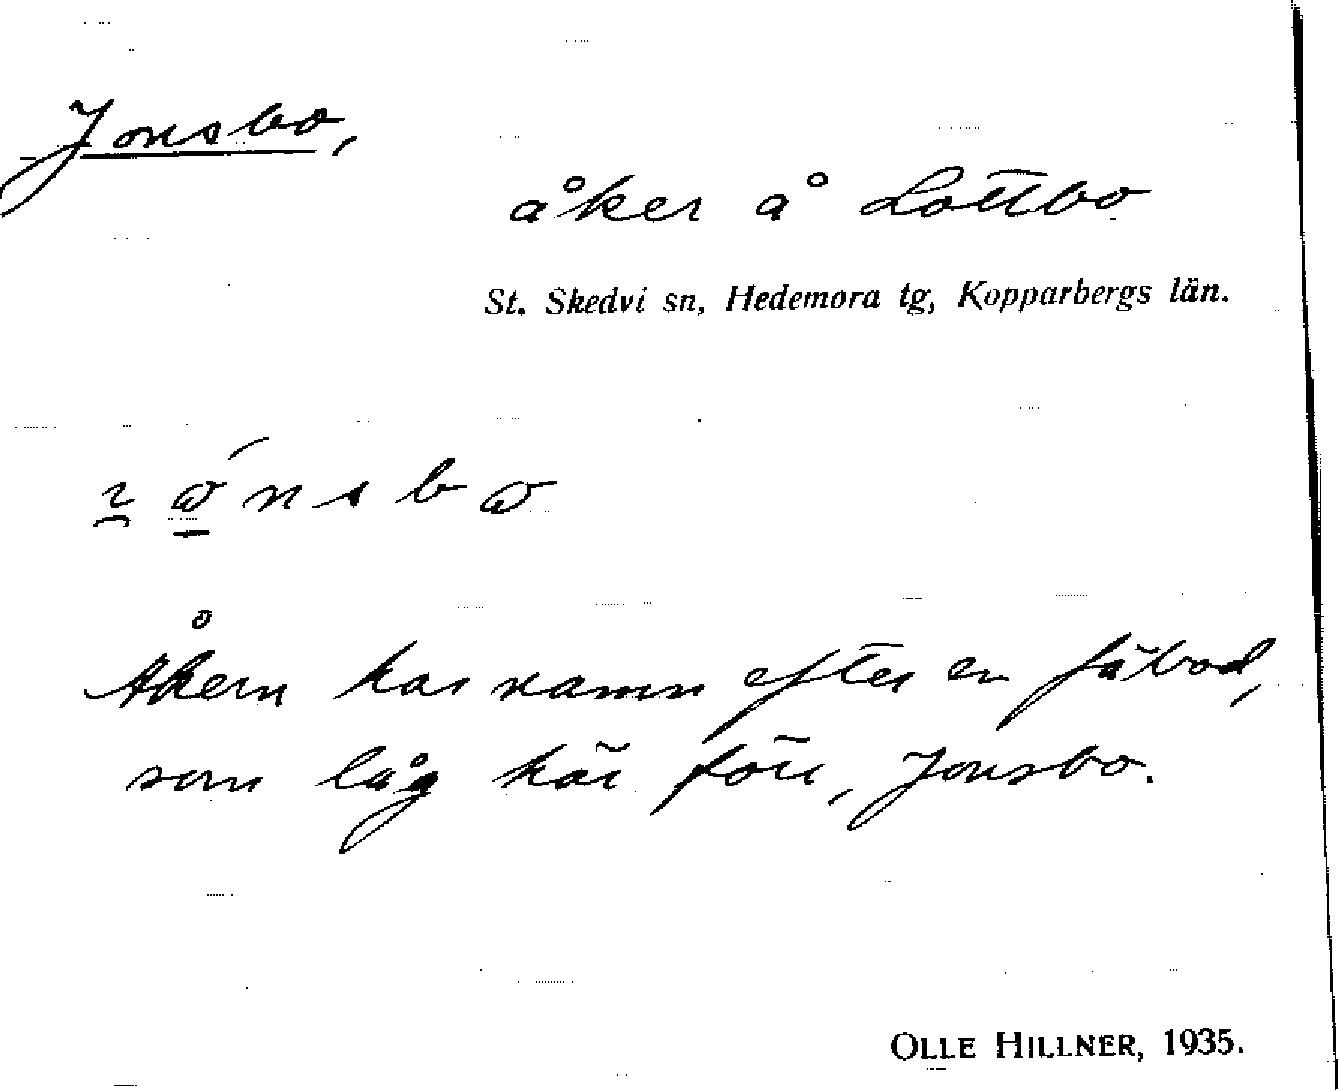 Jonsbo,
åker å Lottbo
St. Skedvi sn, Hedemora tg, Kopparbergs län.
Åkern har namn efter en fäbod,
som låg här förr, Jonsbo.
OLLE HILLNER, 1935.